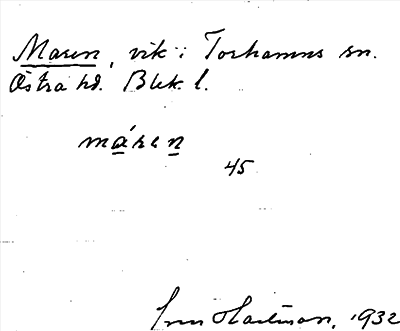 Maren, vik i Torhamns sn.
Östra hd. Blek. l.
máren
45
Hartman, 1932